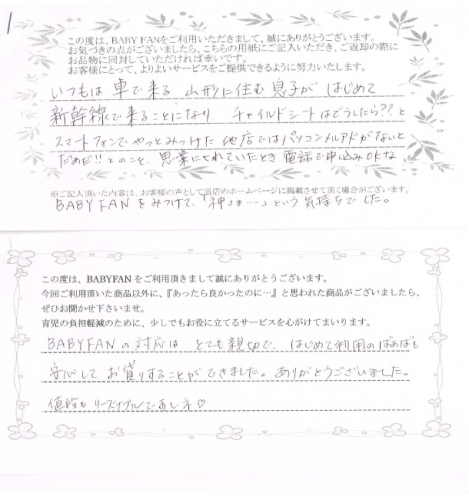 この度は、BABY FANをご利用いただきまして、誠にありがとうございます。
お気づきの点がございましたら、こちらの用紙にご記入いただき、ご返却の際に
お品物に同封していただければ幸いです。
お客様にとって、よりよいサービスをご提供できるように努力いたします。
いつもは 車で来る 山形に住む 息子が はじめて
新幹線で来ることになり チャイルドシートはどうしたら??と
スマートフォンでやっとみつけた 他店ではパソコンメルアドがないと
だめだ!! とのこと、 にくれていたとき 電話で申込みOKな
※ご記入頂いた内容は、お客様の声として当店のホームページに掲載させて頂く場合がございます。
BABY FAN をみつけて、「神さま…」という 気持ちでした。
この度は、BABYFAN をご利用頂きまして誠にありがとうございます。
今回ご利用頂いた商品以外に、『あったら良かったのに…』と思われた商品がございましたら、
ぜひお聞かせ下さいませ。
育児の負担軽減のために、少しでもお役に立てるサービスを心がけてまいります。
BABYFAN の 対応は とても 親切で、 はじめて 利用の ばぁばも
安心して お借りすることが できました。 ありがとうございました。
値段も リーズナブルですしネ♡